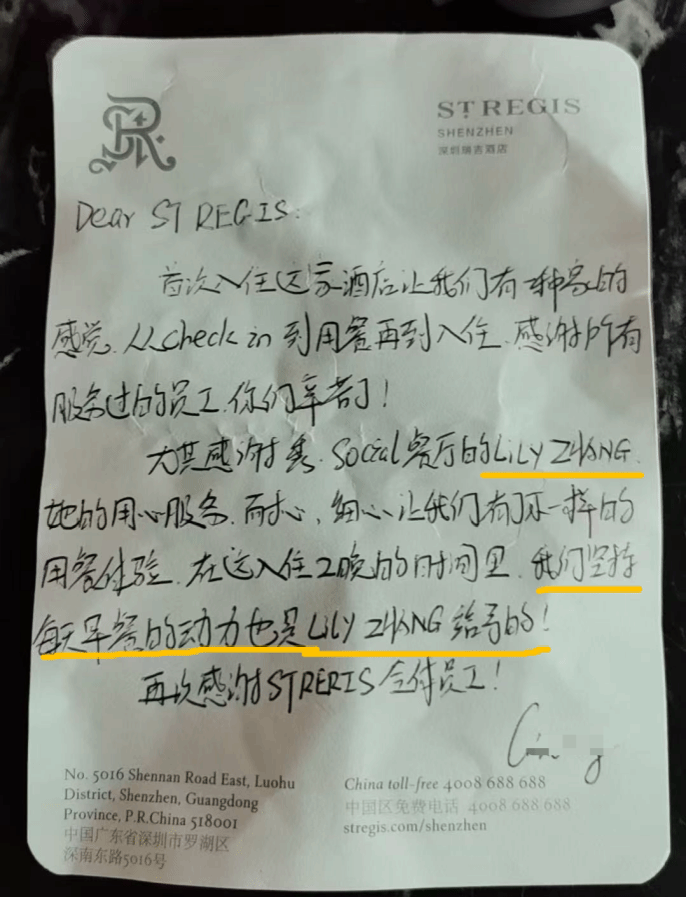 R
ST REGIS
SHENZHEN
深圳瑞吉酒店
Dear ST REGIS:
首次入住这家酒店让我们有一种家的
感觉.从Check in到用餐再到入住.感谢所有
服务过的员工.你们辛苦了!
尤其感谢秀·Social餐厅的LiLY ZHANG.
她的用心服务.耐心、细心让我们有了不一样的
用餐体验.在这入住2晚的时间里.我们坚持
每天早餐的动力也是LiLY ZHANG给予的!
再次感谢STRERIS全体员工!
No. 5016 Shennan Road East, Luohu
District, Shenzhen, Guangdong
Province, P.R.China 518001
中国广东省深圳市罗湖区
深南东路5016号
China toll-free 4008 688 688
中国区免费电话 4008 688 688
stregis.com/shenzhen